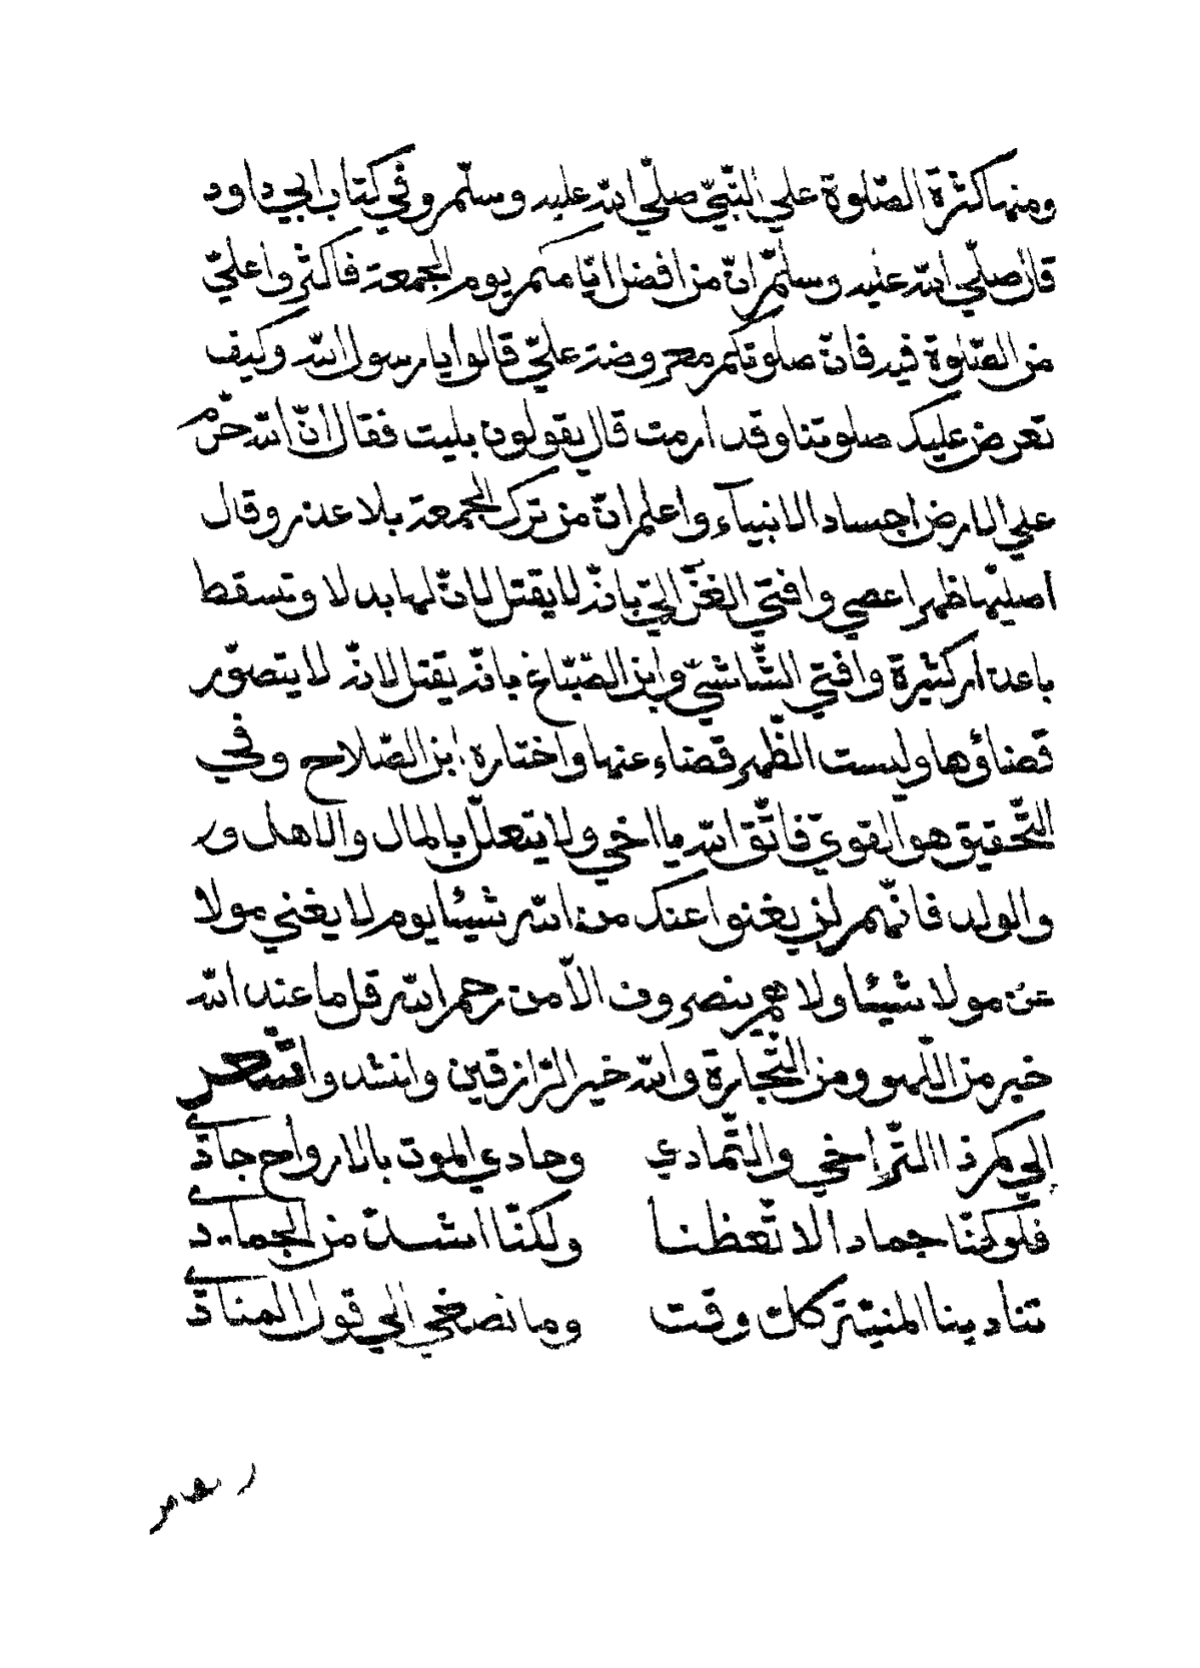 ومنها كثرة الصّلوة علي النّبيّ صلّي اللّه عليه وسلّم وفي كتاب ابي داود
قال صلّي اللّه عليه وسلّم انّ من افضل ايّامكم يوم الجمعة فاكثروا عليّ
من الصّلوة فيه فانّ صلوتكم معروضة عليّ قالوا يا رسول اللّه وكيف
تعرض عليك صلوتنا وقد ارمت قال يقولون بليت فقال انّ اللّه حرّم
علي الارض اجساد الانبيآء واعلم انّ من ترك الجمعة بلا عذر وقال
اصليها ظهرا عصي وافتي الغزّالي بانّه لا يقتل لانّ لها بدلا وتسقط
باعذار كثيرة وافتي الشّاشيّ وابن الصّبّاغ بانّه يقتل لانّه لا يتصوّر
قضاؤها وليست الظّهر قضاء عنها واختاره ابن الصّلاح وفي
التّحقيق هو القويّ فاتّق اللّه يا اخي ولا يتعلّل بالمال والاهل ور
والولد فانّهم لن يغنوا عنك من اللّه شيئا يوم لا يغني مولا
عن مولا شيئا ولا هم ينصروف الاّ من رحم اللّه قل ما عند اللّه
خير من اللّهو ومن التّجارة واللّه خير الرّازقين وانشد وا
الي كم ذا التّراخي والتّمادي وحادي الموت بالارواح حادي
فلو كنّا جمادا لاتّعظنا ولكنّا اشدّ من الجماد
تنادينا المنيّة كل وقت وما نصغي الي قول المنادي